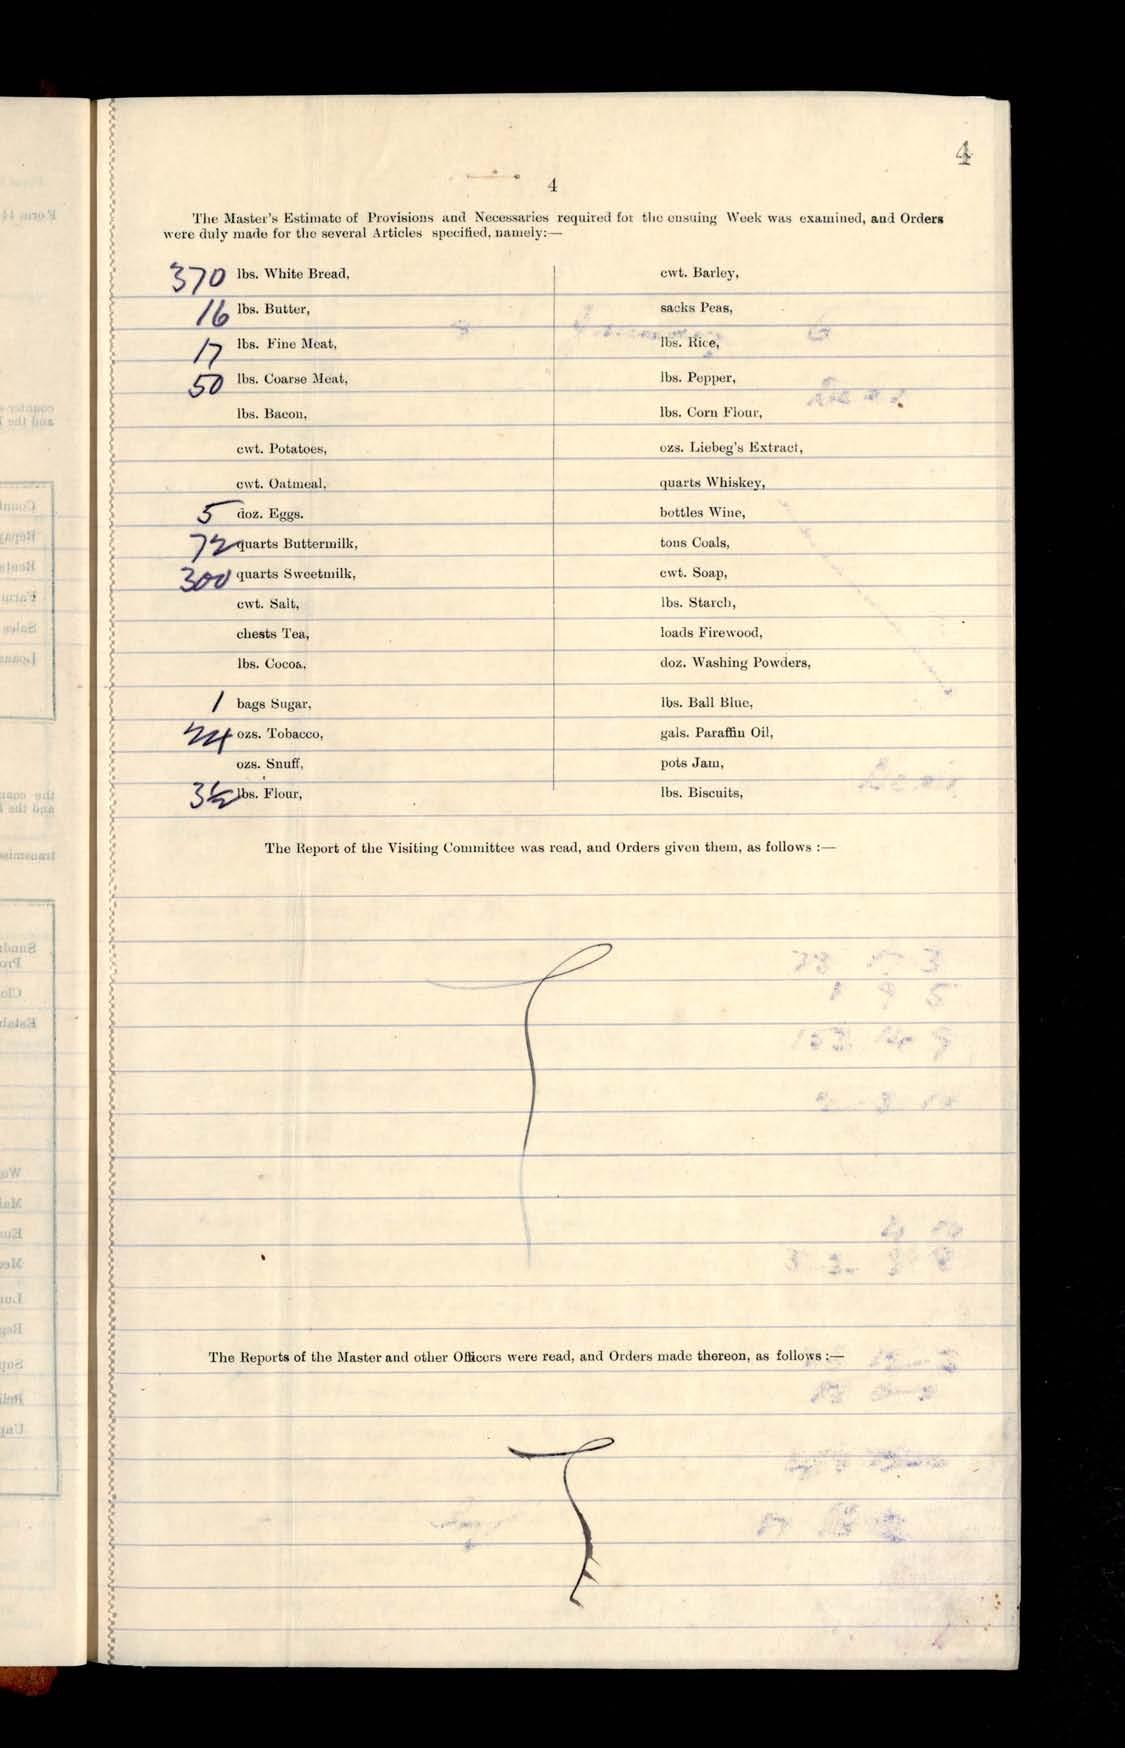 4
4
The Master's Estimate of Provisions and Necessaries required for the ensuing Week was examined, and Orders
were duly made for the several Articles specified, namely:—
370 lbs. White Bread,
16 lbs. Butter,
17 lbs. Fine Meat,
50 lbs. Coarse Meat,
lbs. Bacon,
cwt. Potatoes,
cwt. Oatmeal,
5 doz. Eggs.
72 quarts Buttermilk,
300 quarts Sweetmilk,
cwt. Salt,
chests Tea,
lbs. Cocoa,
1 bags Sugar,
24 ozs. Tobacco,
ozs. Snuff,
3½ lbs. Flour,
cwt. Barley,
sacks Peas,
lbs. Rice,
lbs. Pepper,
lbs. Corn Flour,
ozs. Liebeg's Extract,
quarts Whiskey,
bottles Wine,
tons Coals,
cwt. Soap,
lbs. Starch,
loads Firewood,
doz. Washing Powders,
lbs. Ball Blue,
gals. Paraffin Oil,
pots Jam,
lbs. Biscuits,
The Report of the Visiting Committee was read, and Orders given them, as follows :—
The Reports of the Master and other Officers were read, and Orders made thereon, as follows :—